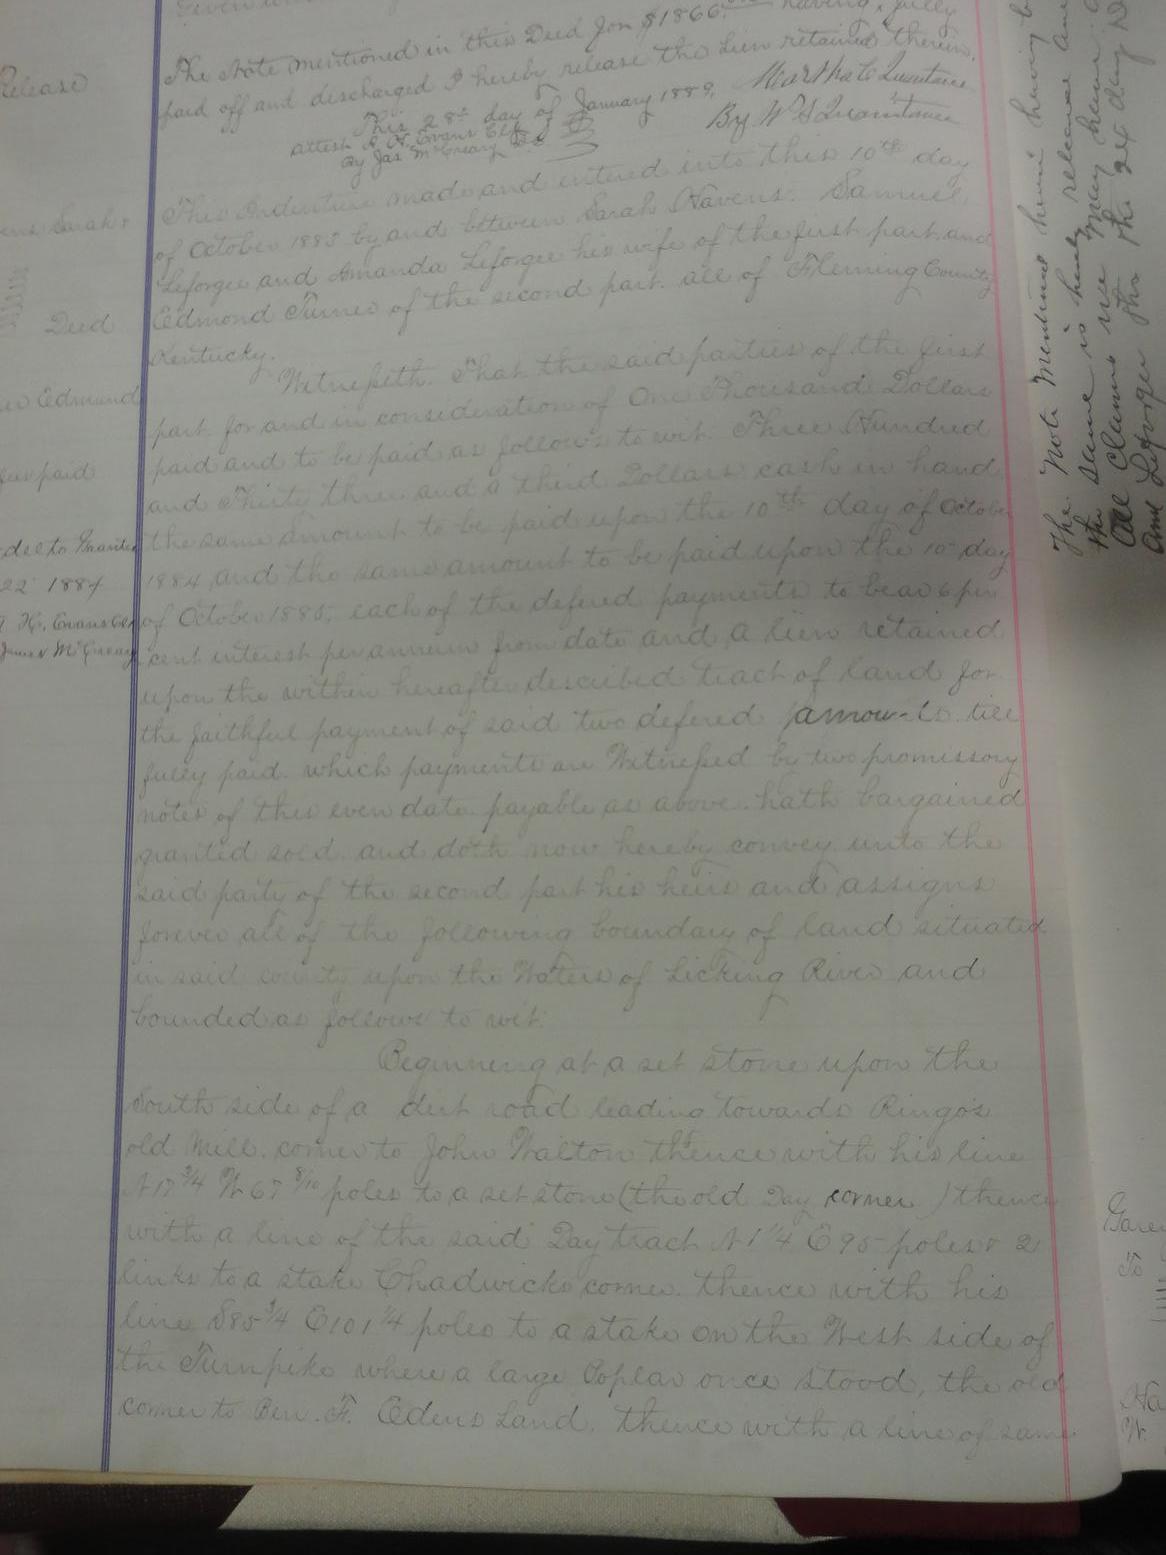 The Note mentioned in this Deed for $1866. having fully
paid off and discharged I hereby release the lien retained therein.
This 28th day of January 1889. Martha C Quintance
attest A. H. Evans Clk By W S Quaintance
By Jas McGreary D.C.
Release
This Indenture made and entered into this 10th day
of October 1883 by and between Sarah Havens. Samuel
Leforgee and Amanda Leforgee his wife of the first part. and
Edmond Turner of the second part. all of Fleming County
Kentucky.
Sarah &
Deed
Edmund
paid
Witnesseth. That the said parties of the first
part. for and in consideration of One Thousand Dollars
paid and to be paid as follows to wit. Three Hundred
and Thirty three and a third Dollars cash in hand
the same amount to be paid upon the 10th day of October
1884, and the same amount to be paid upon the 10 day
of October 1885, each of the defered payments to bear 6 per
cent interest per annum from date and a lien retained
upon the within hereafter described tract of land for
the faithful payment of said two defered amounts till
fully paid. which payments are Witnessed by two promissory
notes of this even date. payable as above. hath bargained
granted sold. and doth now hereby convey unto the
said party of the second part his heirs and assigns
forever all of the following boundary of land situated
in said county upon the Waters of Licking River and
bounded as follows to wit:
del to Grantee
22 1884
H. Evans Clk
James McGreary
Beginning at a set stone upon the
South side of a dirt road leading towards Ringo's
old Mill. corner to John Walton thence with his line
N 17 3/4 W 67 8/10 poles to a set stone (the old Day corner) thence
with a line of the said Day tract N 1 1/4 E 95 poles & 21
links to a stake Chadwicks corner. thence with his
line S 85 3/4 E 101 1/4 poles to a stake on the West side of
the Turnpike where a large Poplar once stood, the old
corner to Ben. F. Edens Land. thence with a line of same
The Note Mentioned herein having b
the same is hereby released and
all claims we may have
This the 24 day